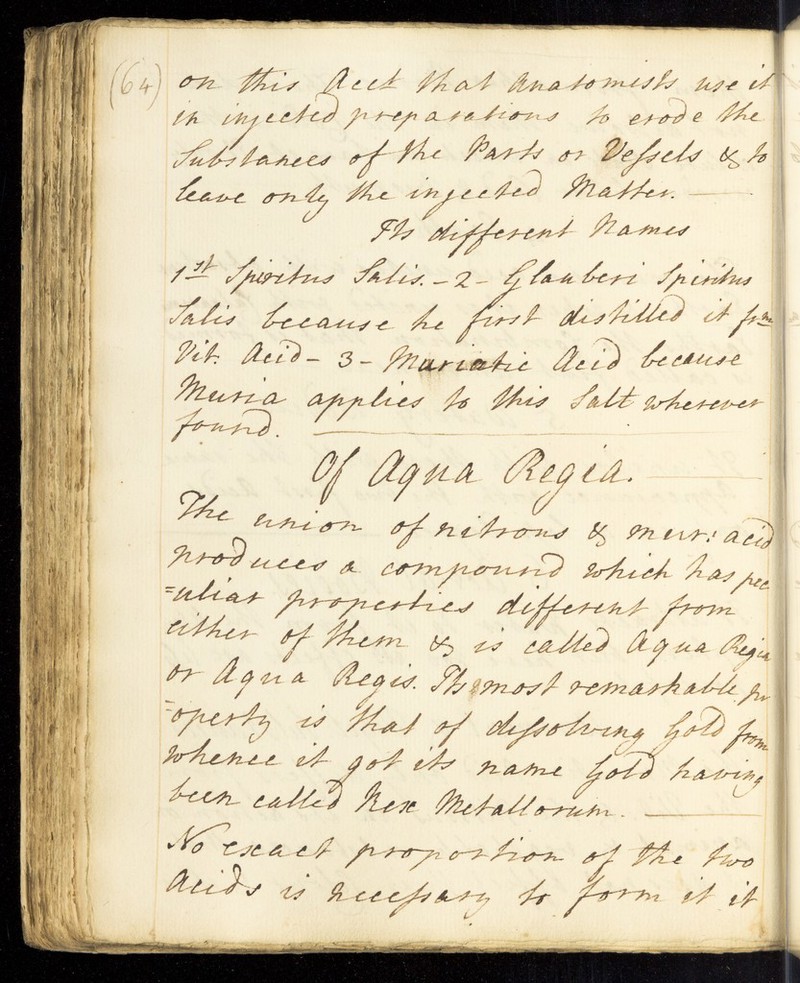 (64) on this Acct that Anatomists use it
in injected preparations to erode the
Substances of the Parts or Vessels & to
leave only the injected Matter. —
Its different Names
1st Spiritus Salis. - 2 - Glauberi Spiritus
Salis because he first distilled it from
Vit: Acid - 3 - Muriatic Acid because
Muria applies to this Salt wherever
found. —
Of Aqua Regia. —
The union of nitrous & mur: acid
produces a compound which has pec
=uliar properties different from
either of them & is called Aqua Regia
or Aqua Regis. Its most remarkable pr
=operty is that of dissolving Gold from
whence it got its name Gold having
been called Rex Metallorum. —
No exact proportion of the two
Acids is necessary to form it it